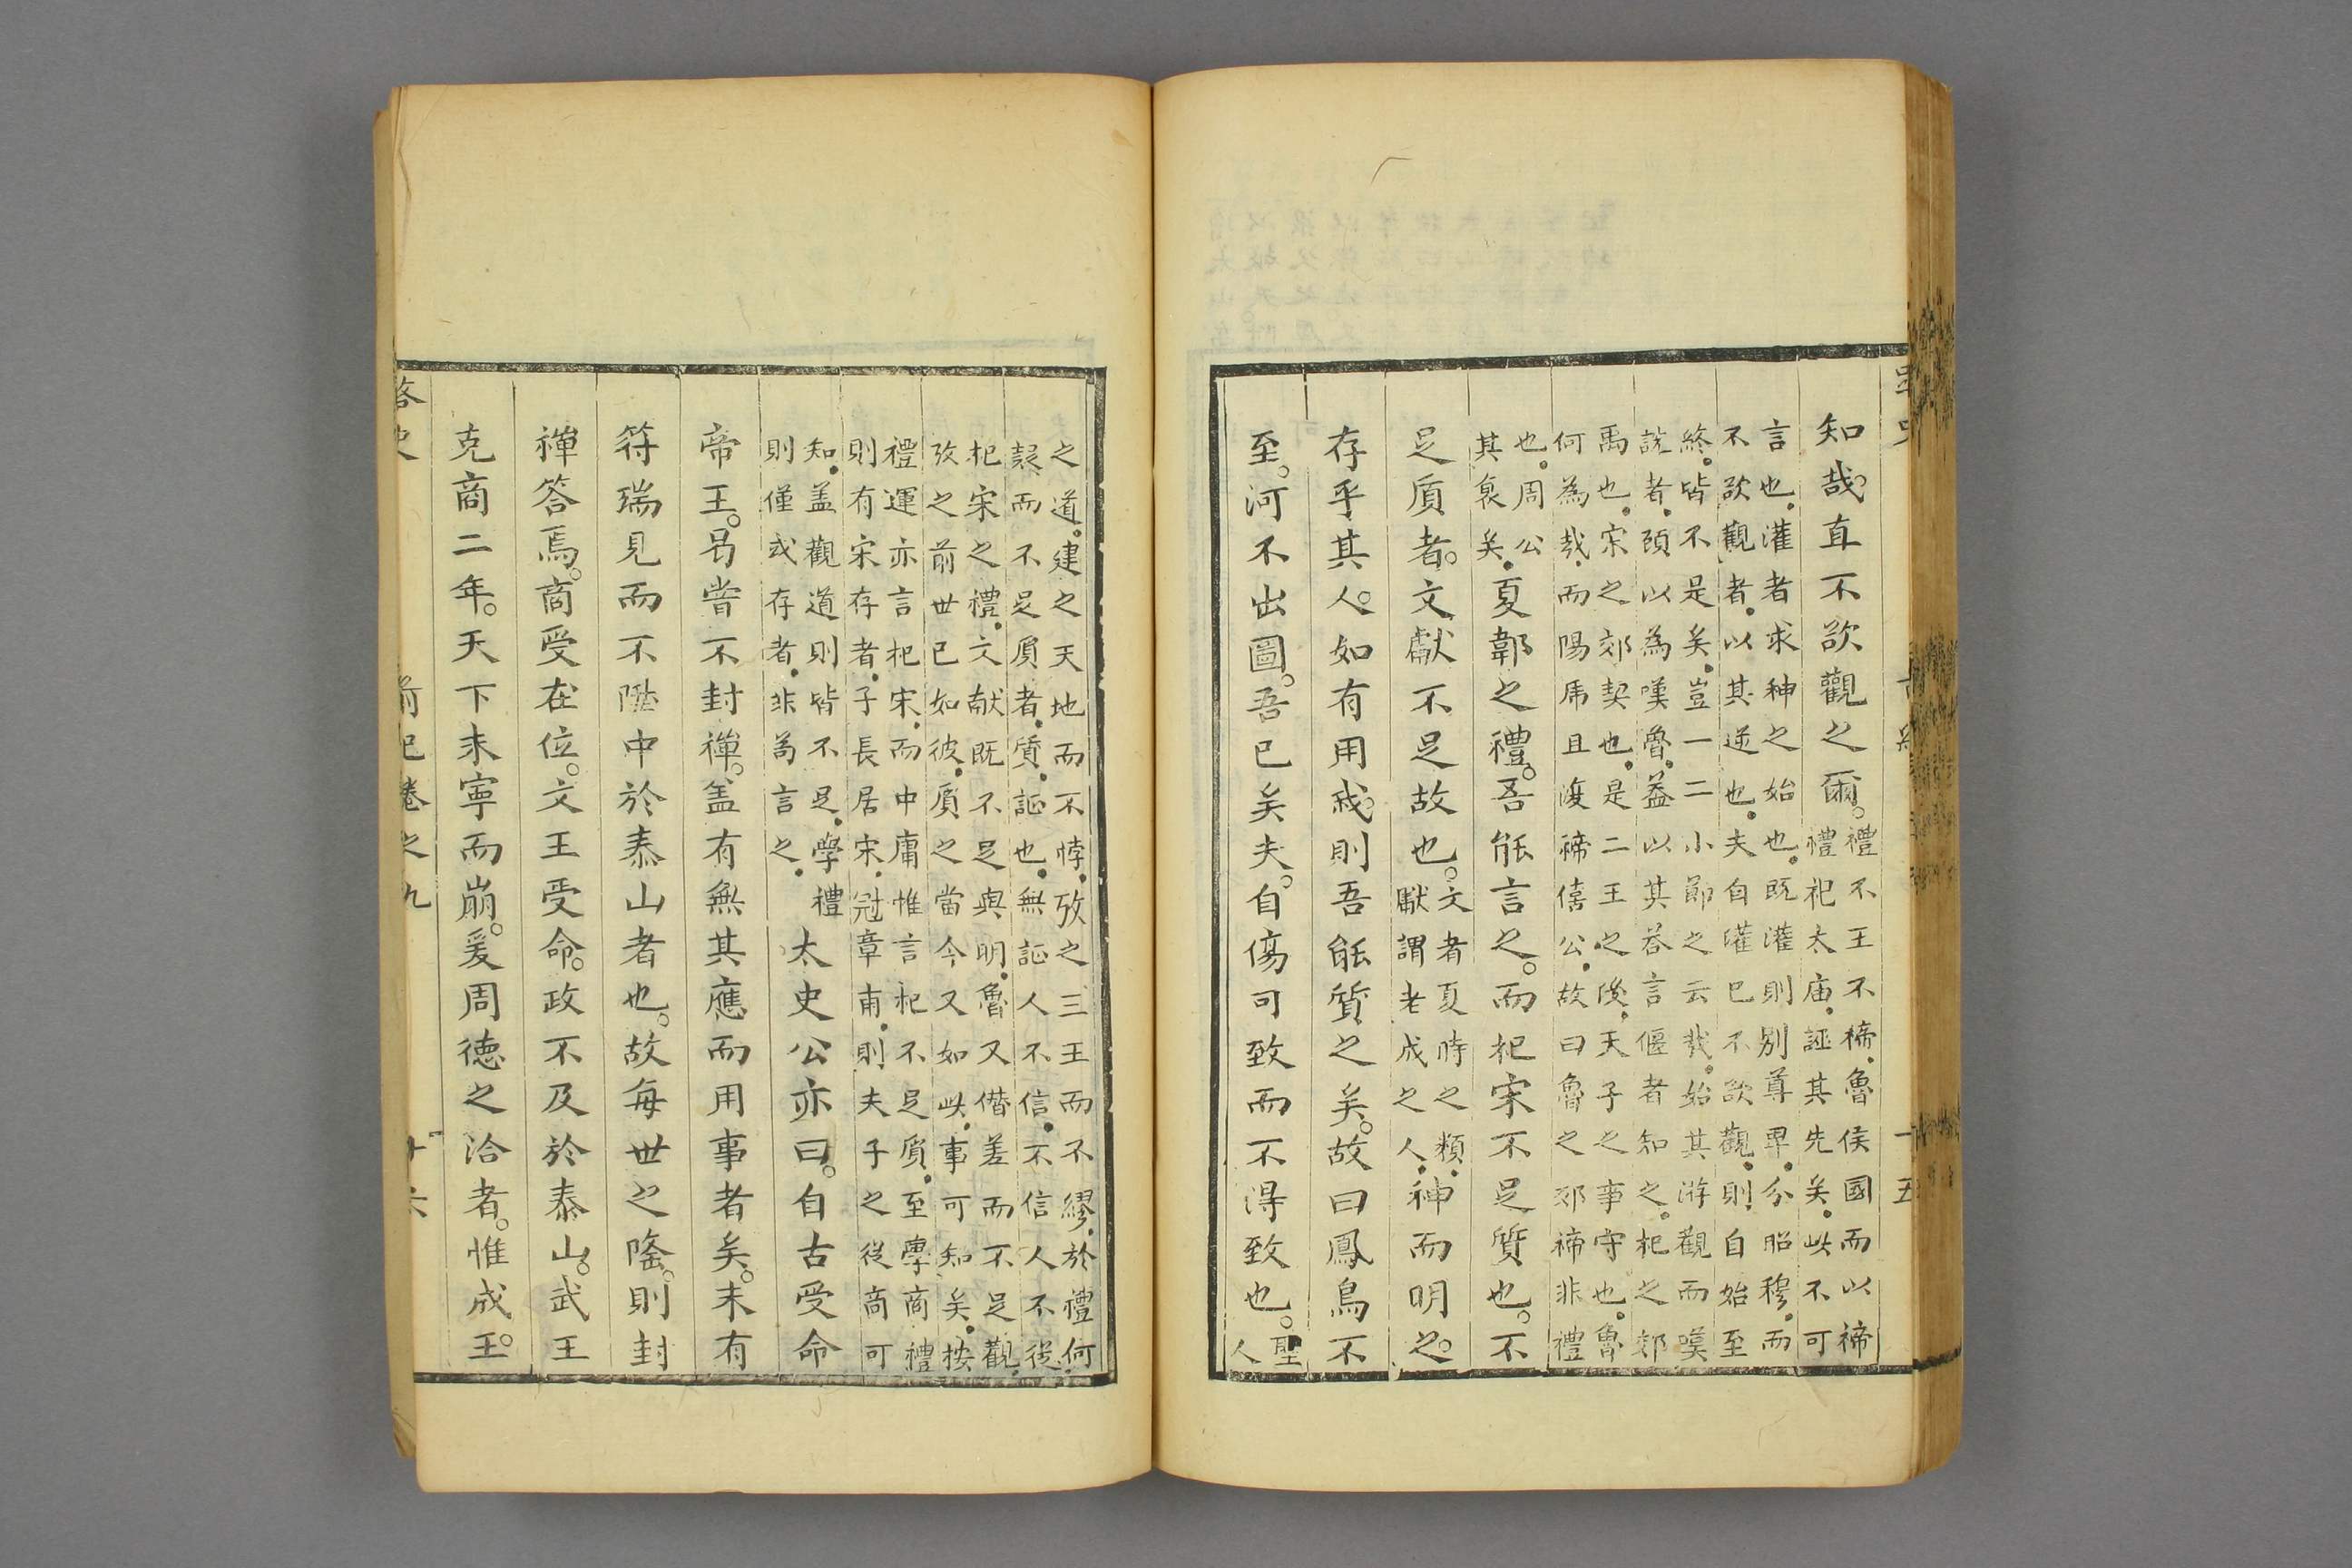 知哉直不欲觀之爾禮不王不禘魯侯國而以禘
禮祀太庙誣其先矣此不可
言也灌者求神之始也既灌則别尊卑分昭穆而
不欲觀者以其逆也夫自灌已不欲觀則自始至
終皆不是矣豈一二小節之云哉始其游觀而嘆
說者頋以為嘆魯葢以其荅言偃者知之杞之郊
禹也宋之郊契也是二王之後天子之事守也魯
何為哉而陽虎且復禘僖公故曰魯之郊禘非禮
也周公
其衰矣夏鄣之禮吾能言之而杞宋不足質也不
足質者文獻不足故也文者夏時之類
獻謂老成之人神而明之
存乎其人如有用我則吾能質之矣故曰鳳鳥不
至河不出圖吾已矣夫自傷可致而不得致也聖
人
之道建之天地而不悖攷之三王而不繆於禮何
疑而不足質者質証也無証人不信不信人不從
杞宋之禮文献既不足與明魯又僭差而不足觀
攷之前世已如彼質之當今又如此事可知矣按
禮運亦言杞宋而中庸惟言杞不足質至學商禮
則有宋存者子長居宋冠章甫則夫子之從商可
知盖觀道則皆不足學禮
則僅或存者非為言之太史公亦曰自古受命
帝王曷嘗不封禪盖有無其應而用事者矣未有
符瑞見而不陞中於泰山者也故每世之隆則封
禪答焉商受在位文王受命政不及於泰山武王
克商二年天下未寧而崩爰周德之洽者惟成王
前紀卷之九
十六
十五